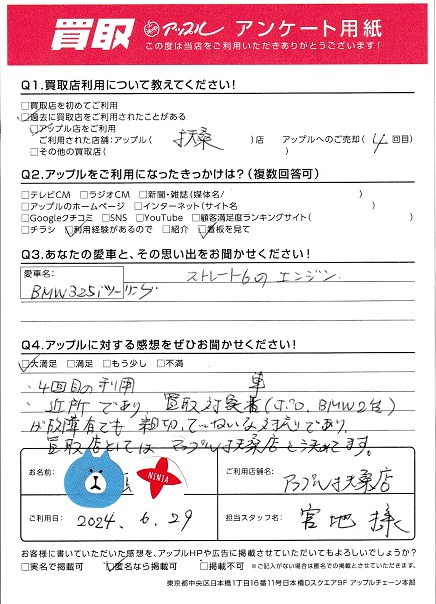 買取 アップル アンケート用紙
この度は当店をご利用いただきありがとうございます!
Q1.買取店利用について教えてください!
□買取店を初めてご利用
☑過去に買取店をご利用されたことがある
☑アップル店をご利用
ご利用された店舗:アップル( 扶桑 )店 アップルへのご売却( 4 回目)
□その他の買取店( )
Q2.アップルをご利用になったきっかけは?(複数回答可)
□テレビCM □ラジオCM □新聞・雑誌(媒体名/ )
□アップルのホームページ □インターネット(サイト名 )
□Googleクチコミ □SNS □YouTube □顧客満足度ランキングサイト( )
□チラシ ☑利用経験があるので □紹介 ☑看板を見て
Q3.あなたの愛車と、その思い出をお聞かせください!
愛車名: ストレート6のエンジン.
BMW325iツーリング
Q4.アップルに対する感想をぜひお聞かせください!
☑大満足 □満足 □もう少し □不満
・4回目の利用 車
・近所であり 買取対象(ポロ、BMW2台)
が故障有でも 親切でていねいな対応であり、
買取店としては アップル扶桑店と決めてます。
お名前: NINJA ご利用店舗名: アップル扶桑店
ご利用日: 2024. 6. 29 担当スタッフ名: 宮地 様
お客様に書いていただいた感想を、アップルHPや広告に掲載させていただいてもよろしいでしょうか?
□実名で掲載可 ☑匿名なら掲載可 □掲載不可 ※ご記入がない場合は匿名での掲載とさせていただきます。
東京都中央区日本橋1丁目16番11号日本橋Dスクエア9F アップルチェーン本部